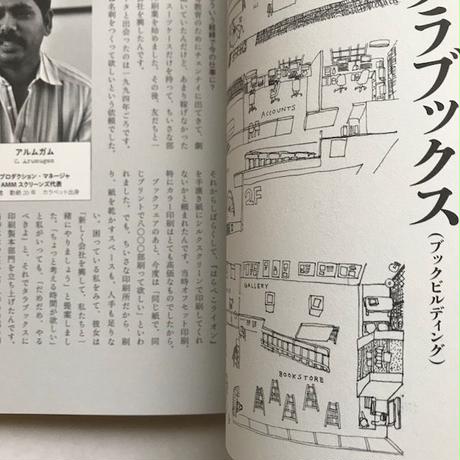 ラブックス
(ブックビルディング)
ACCOUNTS
2F
GALLERY
BOOKSTORE
教育のためにチェンナイに出てきて、劇
ていたんだけど、あまり稼げなかった
スーツケースだけを持って、ちいさな部
刷業を始めました。その後、友だちと一
社を興したんです。
タと出会ったのは一九九四年ごろです。
名刺をつくって欲しいという依頼でした。
アルムガム
C. Arumugam
プロダクション・マネージャ
AMM スクリーンズ代表
勤続 20 年 カラベット出身
それからしばらくして、『はらぺこライオン』
を手漉き紙にシルクスクリーンで印刷してくれ
ないかと頼まれたんです。当時オフセット印刷、
特にカラー印刷はとても高価なものでしたから。
ブックフェアのあと、今度は「同じ紙で、同
じプリントで八〇〇〇部刷って欲しい」といわ
れました。でも、ちいさな印刷所だから、刷
り、紙を乾かすスペースも、人手も足りな
い。困っている私をみて、彼女は
「新しく会社を興して、私たちと一
緒にやりましょう」と提案しまし
た。「ちょっと考える時間が欲しい」
と私がいっても、「だめだめ、やる
べきよ」と。それでタラブックスに
印刷製本部門を立ち上げたんです。